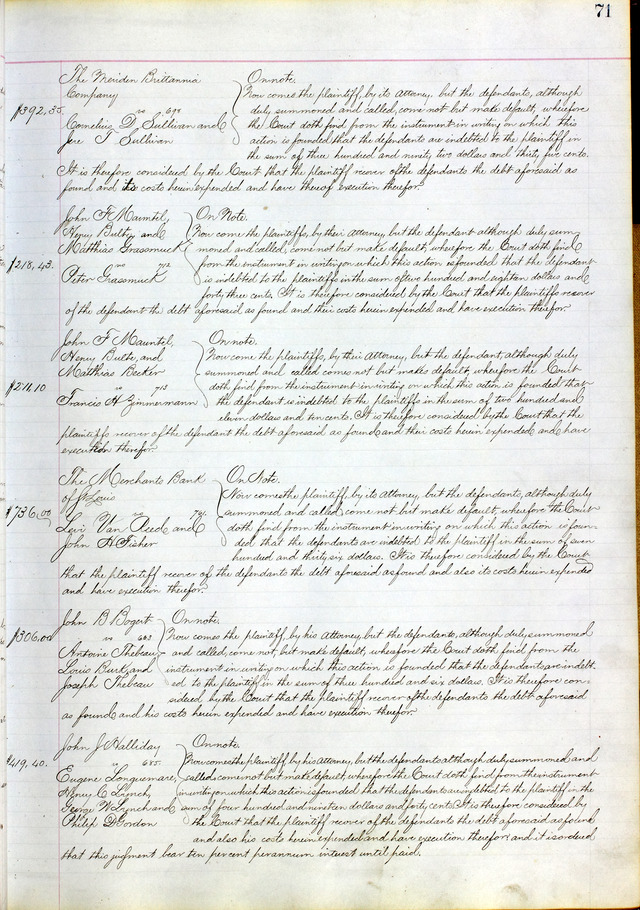 71
The Meriden Brittannia On note.
Company Now comes the plaintiff, by its Attorney, but the defendants, although
$392,35. vs 695 duly summoned and called, come not but make default, wherefore
Cornelius D. Sullivan and the Court doth find from the instrument in writing on which this
Jere T Sullivan action is founded that the defendants are indebted to the plaintiff in
the sum of three hundred and ninety two dollars and thirty five cents.
It is therefore considered by the Court that the plaintiff recover of the defendants the debt aforesaid as
found and its costs herein expended and have thereof execution therefor.
John F. Mauntil, On Note.
Henry Bulte, and Now come the plaintiffs, by their Attorney, but the defendant although duly sum
Matthias Grassmuck moned and called, come not but make default, wherefore the Court doth find
$218,43. vs from the instrument in writing on which this action is founded that the defendant
Peter Grassmuck is indebted to the plaintiffs in the sum of two hundred and eighteen dollars and
forty three cents. It is therefore considered by the Court that the plaintiffs recover
of the defendant the debt aforesaid as found and their costs herein expended and have execution therefor.
John F Mauntil, On note.
Henry Bulte, and Now come the plaintiffs, by their Attorney, but the defendant, although duly
Matthias Becker summoned and called comes not but makes default, wherefore the Court
$211,10 vs 713 doth find from the instrument in writing on which this action is founded that
Francis H Zimmermann the defendant is indebted to the plaintiffs in the sum of two hundred and
eleven dollars and ten cents. It is therefore considered by the Court that the
plaintiffs recover of the defendant the debt aforesaid as found and their costs herein expended and have
execution therefor.
The Merchants Bank On Note.
of St Louis Now comes the plaintiff, by its Attorney, but the defendants, although duly
$736,00 vs 731. summoned and called, come not but make default, wherefore the Court
Levi Van and doth find from the instrument in writing on which this action is foun
John H Fisher ded that the defendants are indebted to the plaintiff in the sum of seven
hundred and thirty six dollars. It is therefore considered by the Court
that the plaintiff recover of the defendants the debt aforesaid as found and also its costs herein expended
and have execution therefor.
John B Bogert On note.
$306,00 vs 603 Now comes the plaintiff, by his Attorney, but the defendants, although duly summoned
Antoine Thebeau and called, come not, but make default, wherefore the Court doth find from the
Louis Burk, and instrument in writing on which this action is founded that the defendants are indebt
Joseph Thebeau ed to the plaintiff in the sum of three hundred and six dollars. It is therefore con
sidered by the Court that the plaintiff recover of the defendants the debt aforesaid
as found and his costs herein expended and have execution therefor.
John J Halliday On note.
$419,40. vs 685. Now comes the plaintiff by his Attorney, but the defendants although duly summoned and
Eugene Longuemare, called, come not but make default, wherefore the Court doth find from the instrument
Henry C Lynch, in writing on which this action is founded that the defendants are indebted to the plaintiff in the
George W Lynch and sum of four hundred and nineteen dollars and forty cents. It is therefore considered by
Philip D Gordon the Court that the plaintiff recover of the defendants the debt aforesaid as found
and also his costs herein expended and have execution therefor and it is ordered
that this judgment bear ten percent per annum interest until paid.